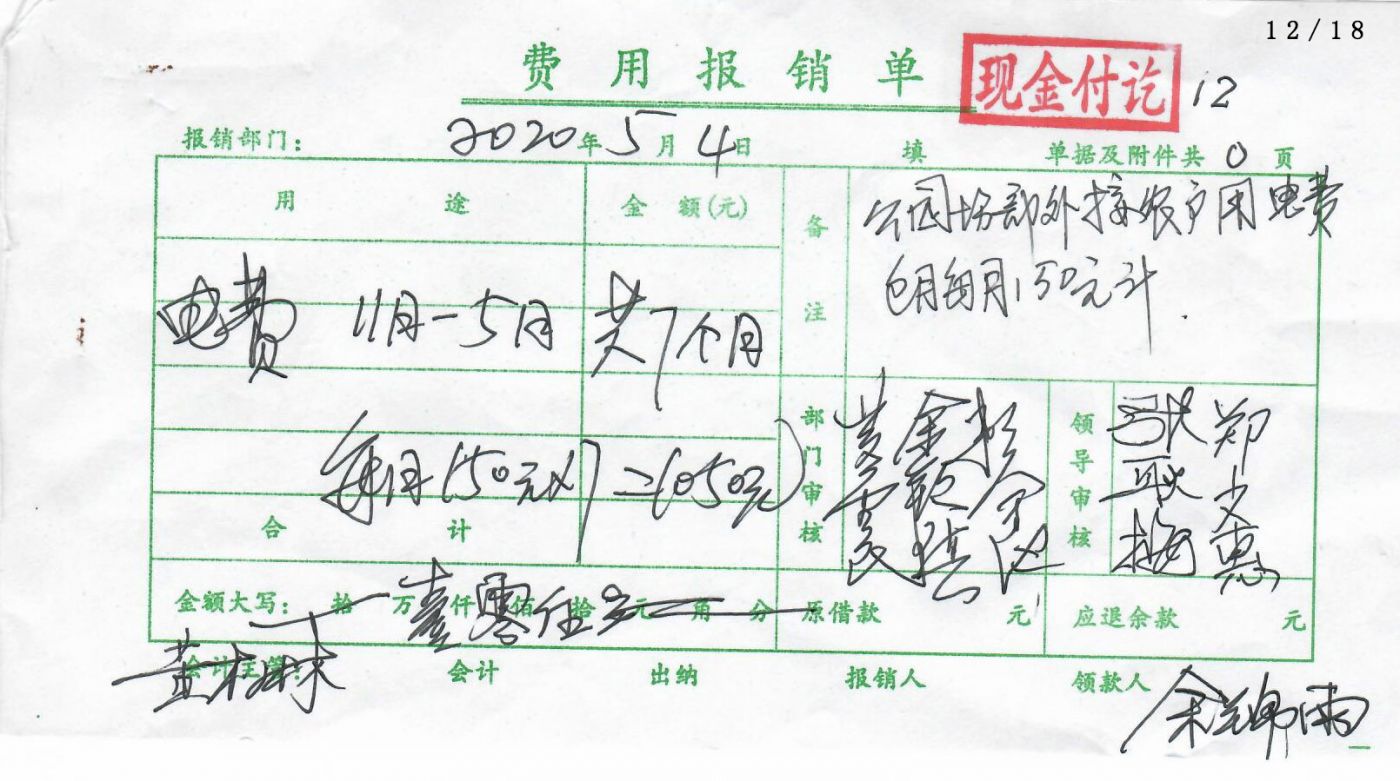 12/18
费用报销单 现金付讫 12
报销部门: 2020年5月4日 填 单据及附件共 0 页
用途 金额(元) 备注 公园场部外接农户用电费
包月每月150元计.
电费 11月-5月 共7个月
每月150元×7=1050元
合计
部门审核 领导审核 郑少惠
金额大写: 拾 万 壹 仟 零 佰 伍 拾 元 角 分 原借款 元 应退余款 元
会计主管: 会计 出纳 报销人 领款人